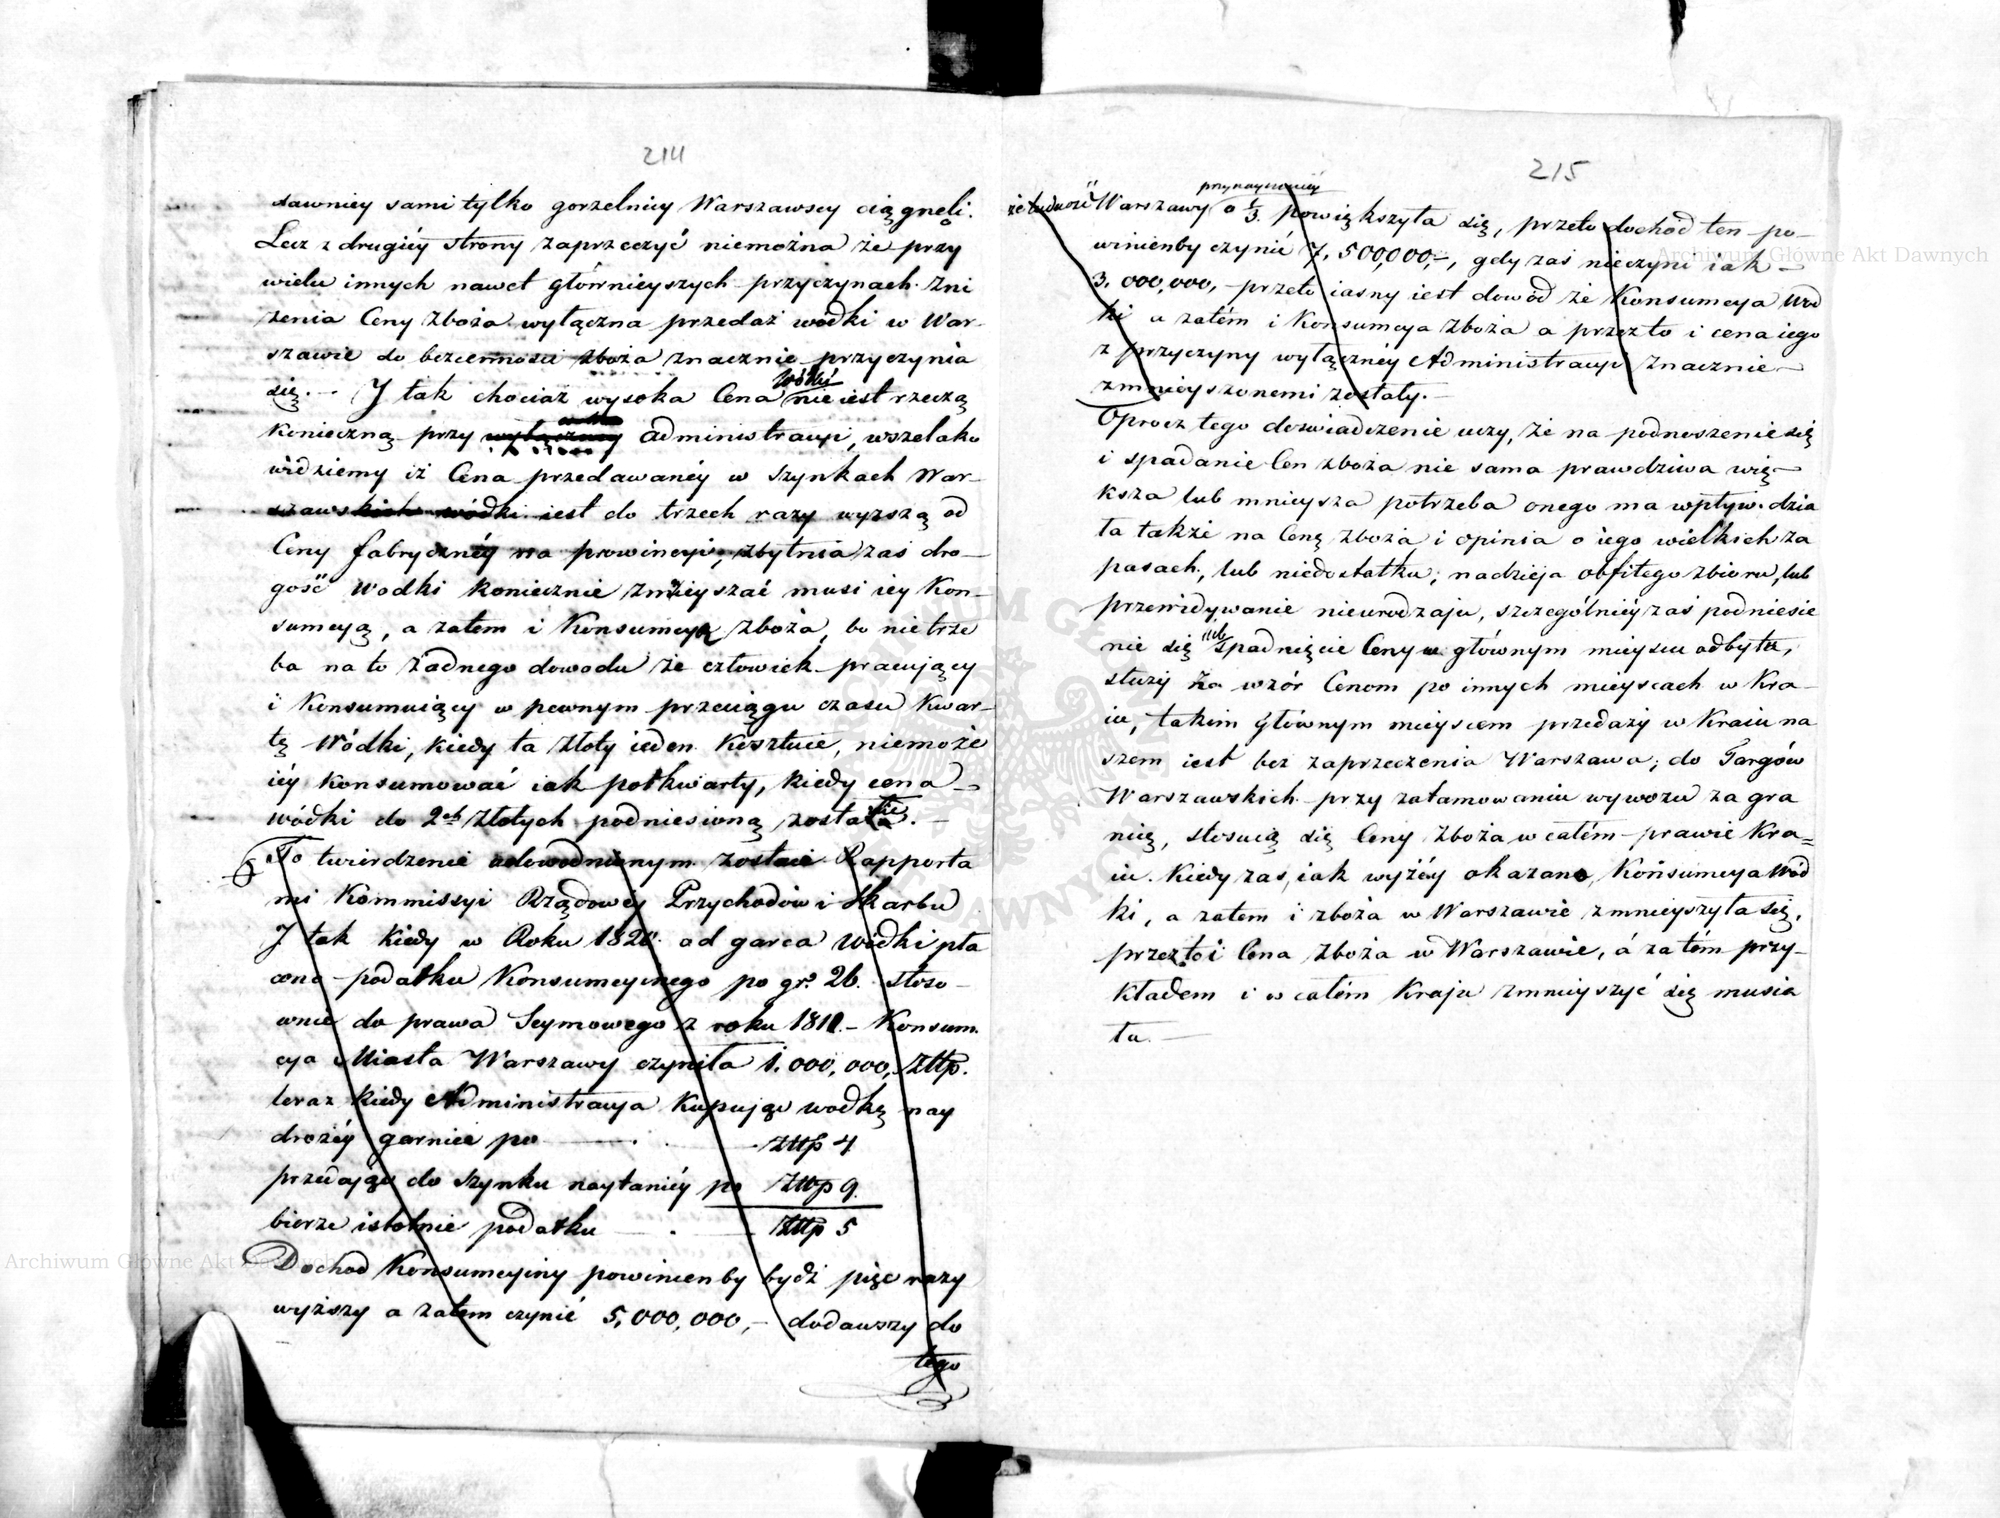 214
dawniey sami tylko gorzelnicy Warszawscy ciągnęli.
Lecz z drugiéy strony zaprzeczyć niemożna że przy
wielu innych nawet główniejszych przyczynach zni
żenia Ceny Zboża wyłączna przedaż wodki w War-
szawie do bezcenności zboża znacznie przyczynia
się. — J tak chociaż wysoka Cena wódki nie iest rzeczą
konieczną przy administracyi, wszelako
widziemy iż Cena przedawanéy w Szynkach War-
szawskich wódki iest do trzech razy wyzszą od
Ceny fabrycznéy na prowincyi, zbytnia zaś dro-
gość wodki koniecznie zmnieyszać musi iey Kon-
sumcyą, a zatem i Konsumcyą zboża, bo nietrze
ba na to żadnego dowodu że człowiek pracujący
i Konsumuiący w pewnym przeciągu czasu Kwar-
tę Wódki, kiedy ta Złoty ieden Kosztuie, niemoże
iéy konsumować iak pół kwarty, kiedy cena
wódki do 2ch Złotych podniesioną
To twierdzenie udowodnionym zostaie Rapporta
mi Kommissyi Rządowéy Przychodów i Skarbu
J tak kiedy w Roku od garca Wódki pła
cono podatku Konsumcyinego po gr. 26. stoso-
wnie do prawa Seymowego z roku 1811.— Konsum.
cya Miasta Warszawy czyniła 1,000,000, Złtp.
teraz kiedy Administracya Kupując wodkę nay
drożéy garniec po — Złtp 4
przedając do szynku naytaniéy po Złtp 9.
bierze istotnie podatku — Złtp 5
Dochod Konsumcyiny powinienby bydź pięc razy
wyższy a zatem czynić 5,000,000,— dodawszy do
tego
215
że ludność Warszawy przynaymniéy o 1/3. powiększyła się, przeto dochód ten po-
winienby czynić 7,500,000,—, gdy zaś nieczyni iak —
3,000,000,— przeto iasny iest dowód że Konsumcya Wód
ki a zatém i Konsumcya Zboża a przez to i cena iego
z przyczyny wyłącznéy Administracyi znacznie —
zmnieyszonemi zostały. —
Oprocz tego doswiadczenie uczy, że na podnoszenie się
i spadanie Cen zboża nie sama prawdziwa wię-
ksza lub mnieysza potrzeba onego ma wpływ. dzia
ła także na Cenę zboża i opinia o iego wielkich za
pasach, lub niedostatku; nadzieja obfitego zbioru, lub
przewidywanie nieurodzaju, szczególniéy zaś podniesie
nie się lub spadnięcie Ceny w głównym mieyscu odbytu,
służy za wzór Cenom po innych mieyscach w Kra-
iu, takim głównym mieyscem przedaży w Kraiu na
szem iest bez zaprzeczenia Warszawa; do Targów
Warszawskich przy zatamowaniu wywozu za gra
nicę, stosuią się Ceny Zboża w całém prawie Kra=
iu. Kiedy zaś, iak wyżéy okazano, Konsumcya Wód
ki, a zatem i zboża w Warszawie zmnieyszyła się,
przez to i Cena Zboża w Warszawie, á zatém przy-
kładem i w całém Kraju zmnieyszyć się musia
ła. —
Archiwum Główne Akt Dawnych
Archiwum Główne Akt Dawnych